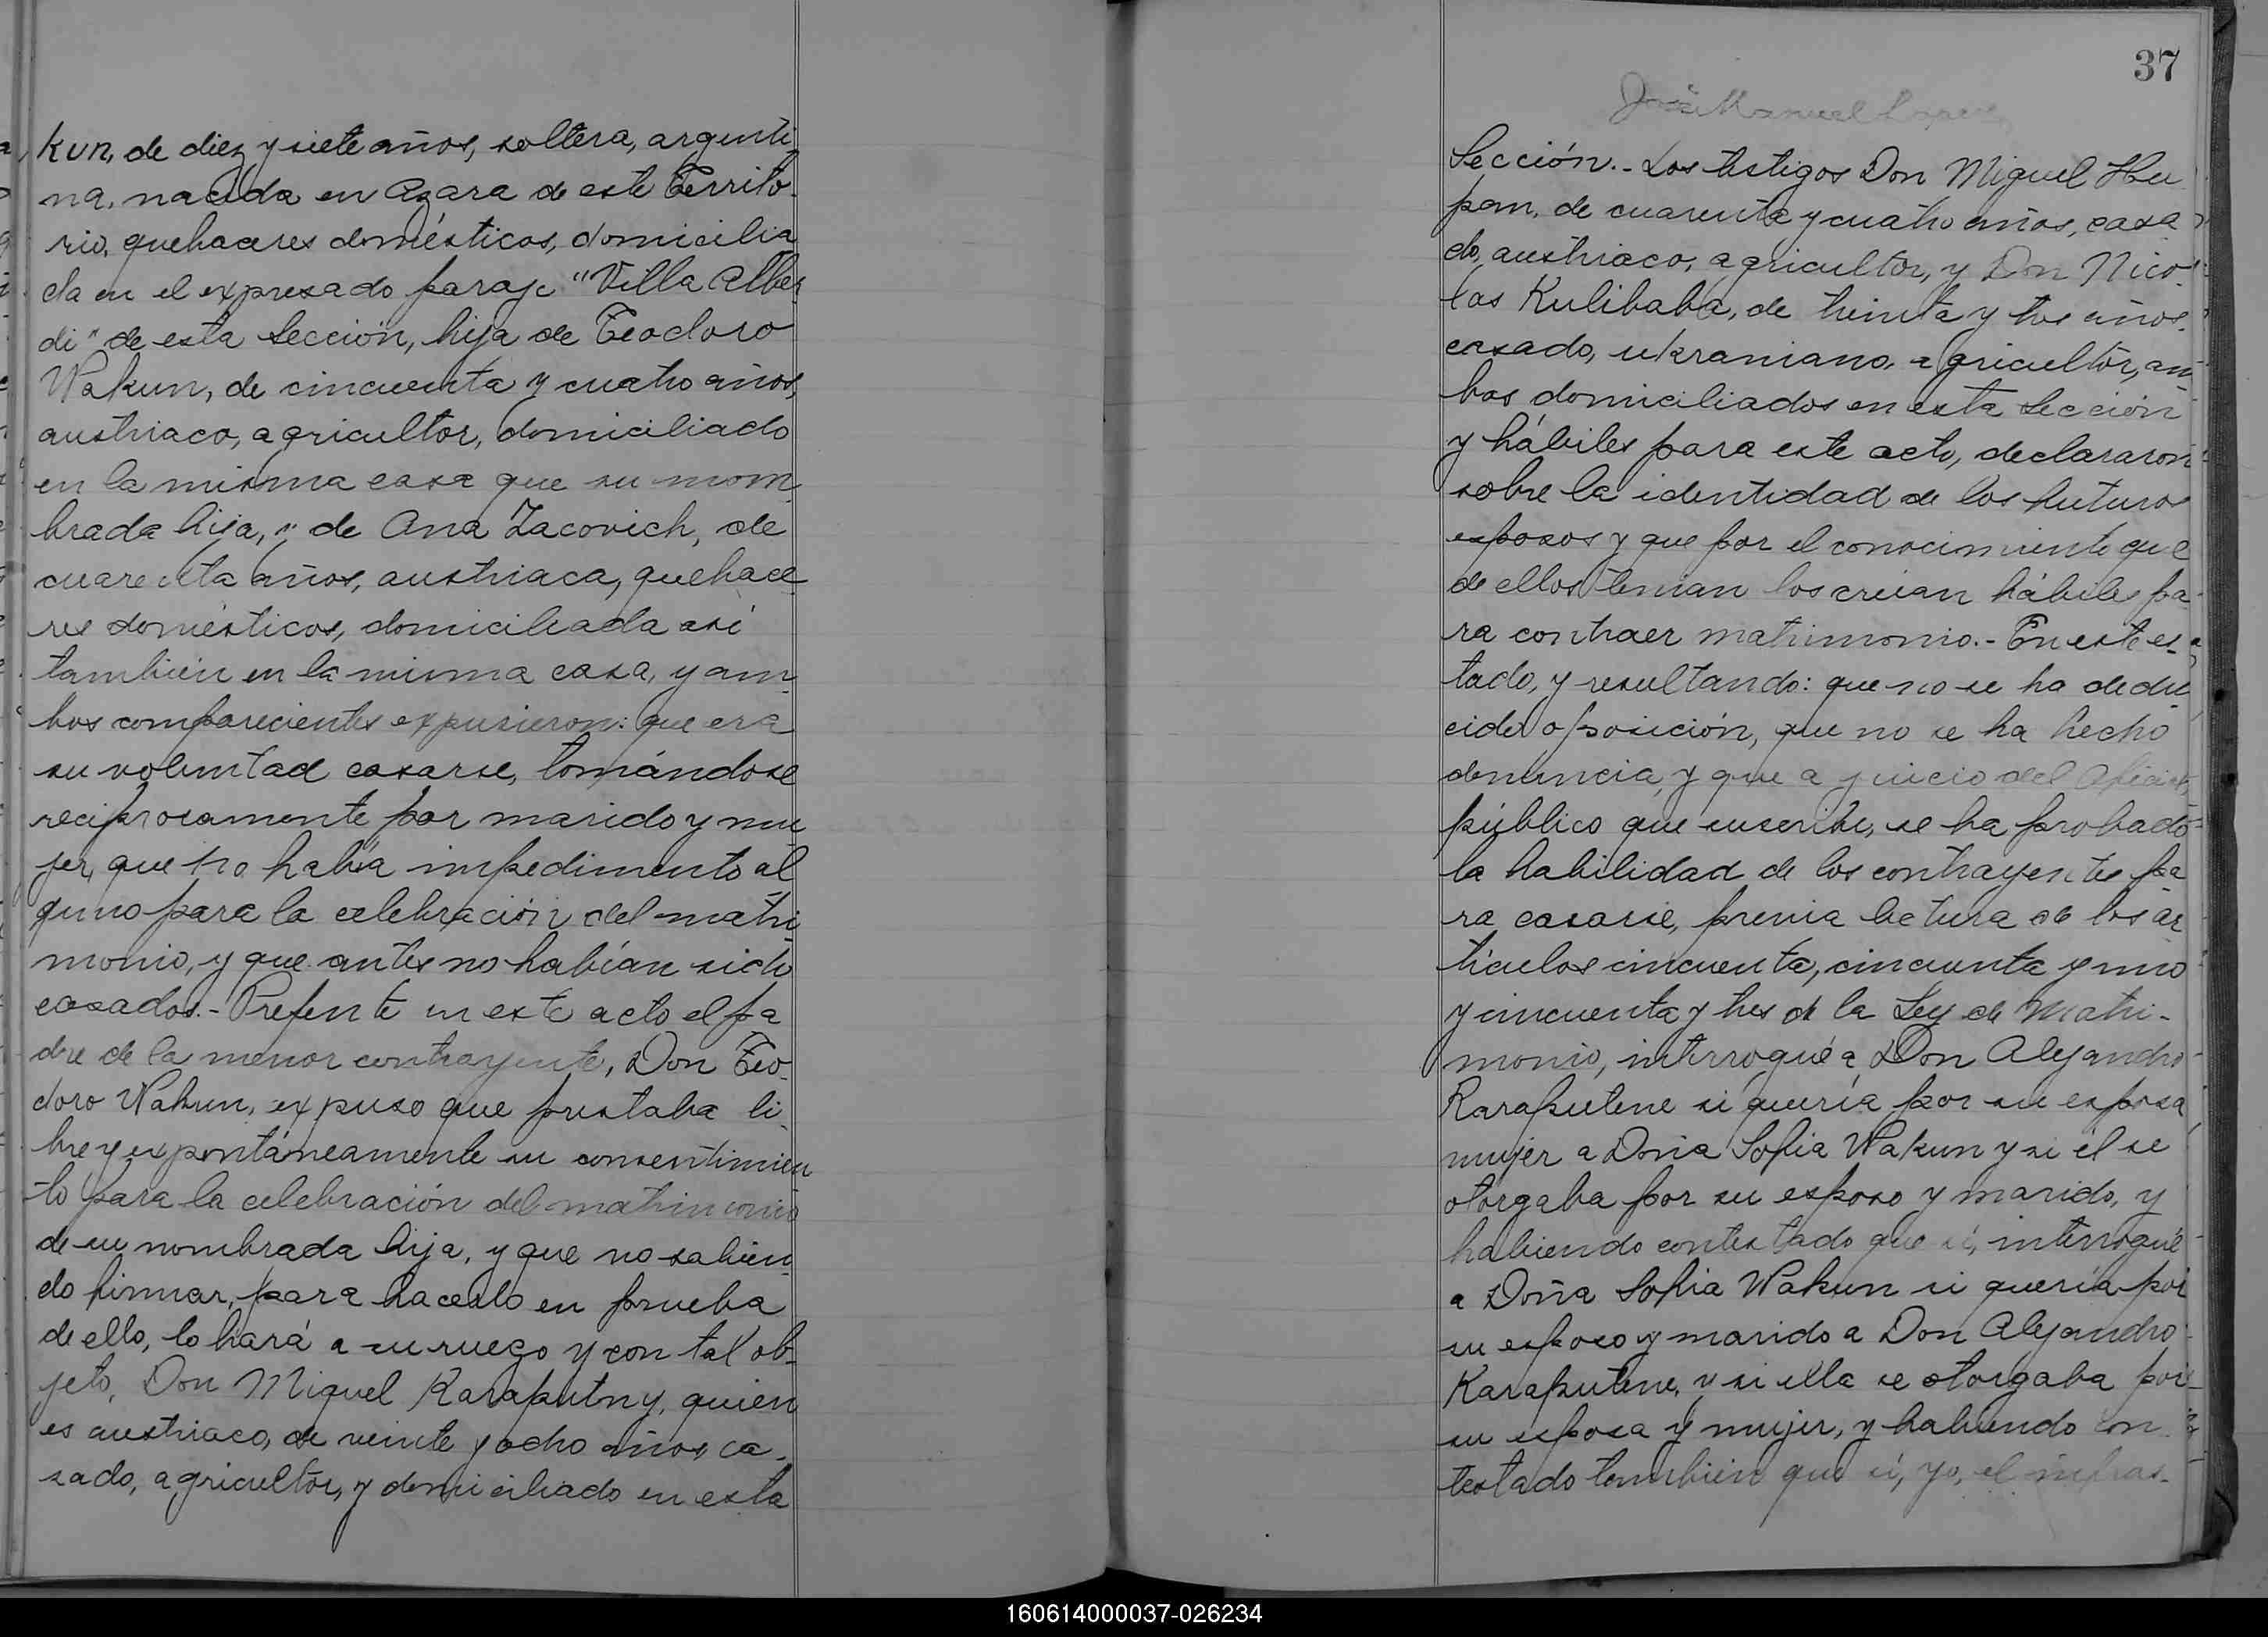 Kun, de diez y siete años, soltera, argenti-
na, nacida en Azara de este Territo-
rio, quehaceres domésticos, domicilia
da en el expresado paraje "Villa Alber
di" de esta Sección, hija de Teodoro
Wakun, de cincuenta y cuatro años,
austriaco, agricultor, domiciliado
en la misma casa que su nom
brada hija, y de Ana Zacovich, de
cuarenta años, austriaca, quehace
res domésticos, domiciliada asi
tambien en la misma casa, y am
bos comparecientes expusieron: que era
su voluntad casarse, tomándose
reciprosamente por marido y mu
jer, que no había impedimento al
guno para la celebración del matri
monio, y que antes no habían sido
casados.- Presente en este acto el pa
dre de la menor contrayente, Don Teo-
doro Wakun, expuso que prestaba li
bre y expontáneamente su consentimien
to para la celebración del matrimonio
de su nombrada hija, y que no sabien
do firmar, para hacerlo en prueba
de ello, lo hará a su ruego y con tal ob-
jeto, Don Miguel Karaputny, quien
es austriaco, de veinte y ocho años, ca-
sado, agricultor, y domiciliado en esta
37
José Manuel
Sección.- Los testigos Don Miguel Hu
pan, de cuarenta y cuatro años, casa
do, austriaco, agricultor, y Don Nico-
las Kulibaba, de treinta y tres años,
casado, ukraniano, agricultor, am
bos domiciliados en esta Sección
y hábiles para este acto, declararon
sobre la identidad de los futuros
esposos y que por el conocimiento que
de ellos tenian los creian hábiles pa
ra contraer matrimonio.- En este es-
tado, y resultando: que no se ha dedu
cido oposición, que no se ha hecho
denuncia, y que a juicio del Oficial
público que suscribe, se ha probado
la habilidad de los contrayentes pa
ra casarse, previa lectura de los ar
tículos cincuenta, cincuenta y uno
y cincuenta y tres de la Ley de Matri-
monio, interrogué a Don Alejandro
Karaputene si quería por su esposa
mujer a Doña Sofia Wakun y si él se
otorgaba por su esposo y marido, y
habiendo contestado que sí, interrogué
a Doña Sofia Wakun si quería por
su esposo y marido a Don Alejandro
Karaputene, y si ella se otorgaba por
su esposa y mujer, y habiendo con
testado tambien que sí, yo, el infras-
160614000037-026234